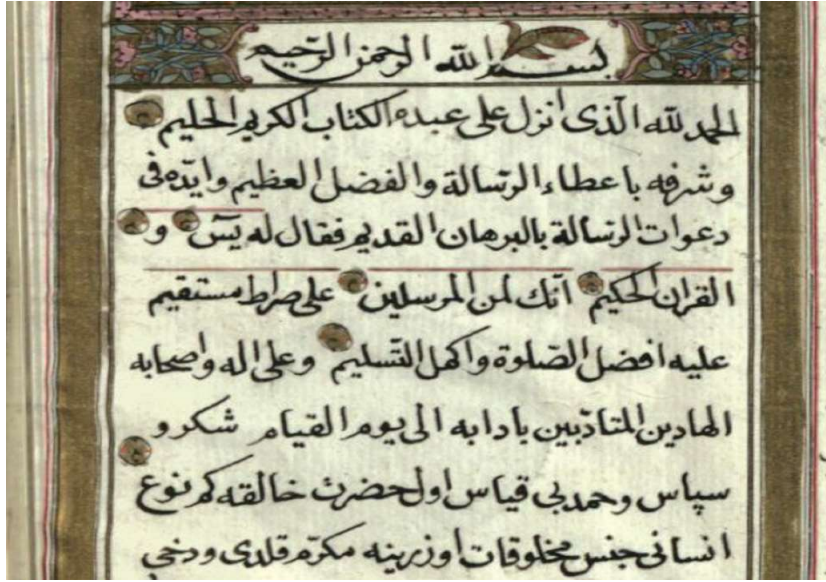 بسم الله الرحمن الرحيم
الحمد لله الّذى انزل على عبده الكتاب الكريم الحليم
وشرفه باعطاء الرّسالة والفضل العظيم وايّده فى
دعوات الرّسالة بالبرهان القديم فقال له يٓس و
القران الحكيم انّك لمن المرسلين على صراط مستقيم
عليه افضل الصّلوة واكمل التّسليم وعلى اله واصحابه
الهادين المتادّبين بادابه الى يوم القيام شكر و
سپاس وحمد بى قياس اول حضرت خالقه كم نوع
انسانى جنس مخلوقات اوزرينه مكرّم قلدى ودخى